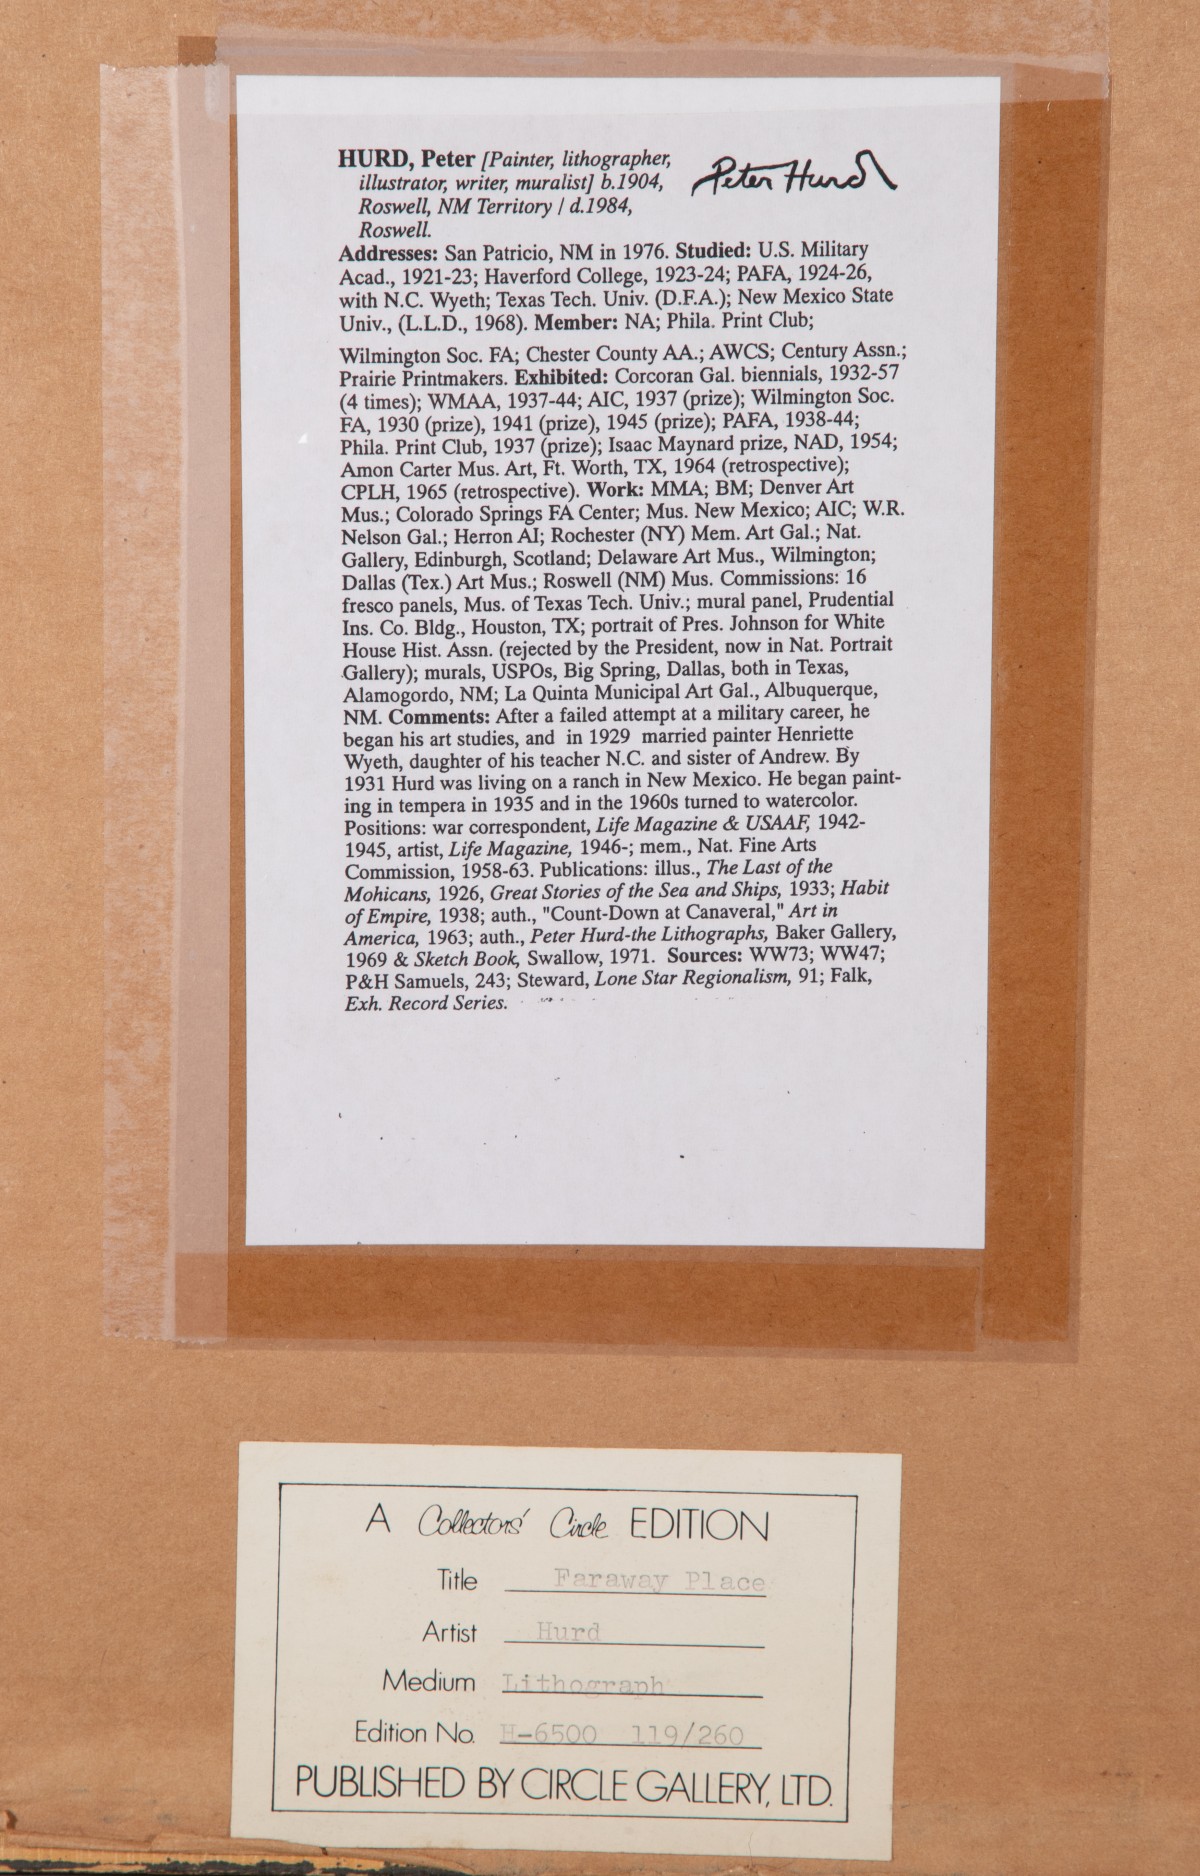 HURD, Peter [Painter, lithographer,
illustrator, writer, muralist] b.1904,
Roswell, NM Territory / d.1984,
Roswell.
Peter Hurd
Addresses: San Patricio, NM in 1976. Studied: U.S. Military
Acad., 1921-23; Haverford College, 1923-24; PAFA, 1924-26,
with N.C. Wyeth; Texas Tech. Univ. (D.F.A.); New Mexico State
Univ., (L.L.D., 1968). Member: NA; Phila. Print Club;
Wilmington Soc. FA; Chester County AA.; AWCS; Century Assn.;
Prairie Printmakers. Exhibited: Corcoran Gal. biennials, 1932-57
(4 times); WMAA, 1937-44; AIC, 1937 (prize); Wilmington Soc.
FA, 1930 (prize), 1941 (prize), 1945 (prize); PAFA, 1938-44;
Phila. Print Club, 1937 (prize); Isaac Maynard prize, NAD, 1954;
Amon Carter Mus. Art, Ft. Worth, TX, 1964 (retrospective);
CPLH, 1965 (retrospective). Work: MMA; BM; Denver Art
Mus.; Colorado Springs FA Center; Mus. New Mexico; AIC; W.R.
Nelson Gal.; Herron AI; Rochester (NY) Mem. Art Gal.; Nat.
Gallery, Edinburgh, Scotland; Delaware Art Mus., Wilmington;
Dallas (Tex.) Art Mus.; Roswell (NM) Mus. Commissions: 16
fresco panels, Mus. of Texas Tech. Univ.; mural panel, Prudential
Ins. Co. Bldg., Houston, TX; portrait of Pres. Johnson for White
House Hist. Assn. (rejected by the President, now in Nat. Portrait
Gallery); murals, USPOs, Big Spring, Dallas, both in Texas,
Alamogordo, NM; La Quinta Municipal Art Gal., Albuquerque,
NM. Comments: After a failed attempt at a military career, he
began his art studies, and in 1929 married painter Henriette
Wyeth, daughter of his teacher N.C. and sister of Andrew. By
1931 Hurd was living on a ranch in New Mexico. He began paint-
ing in tempera in 1935 and in the 1960s turned to watercolor.
Positions: war correspondent, Life Magazine & USAAF, 1942-
1945, artist, Life Magazine, 1946-; mem., Nat. Fine Arts
Commission, 1958-63. Publications: illus., The Last of the
Mohicans, 1926, Great Stories of the Sea and Ships, 1933; Habit
of Empire, 1938; auth., "Count-Down at Canaveral," Art in
America, 1963; auth., Peter Hurd-the Lithographs, Baker Gallery,
1969 & Sketch Book, Swallow, 1971. Sources: WW73; WW47;
P&H Samuels, 243; Steward, Lone Star Regionalism, 91; Falk,
Exh. Record Series.
A Collectors' Circle EDITION
Title Faraway Place
Artist Hurd
Medium Lithograph
Edition No. H-6500 119/260
PUBLISHED BY CIRCLE GALLERY, LTD.